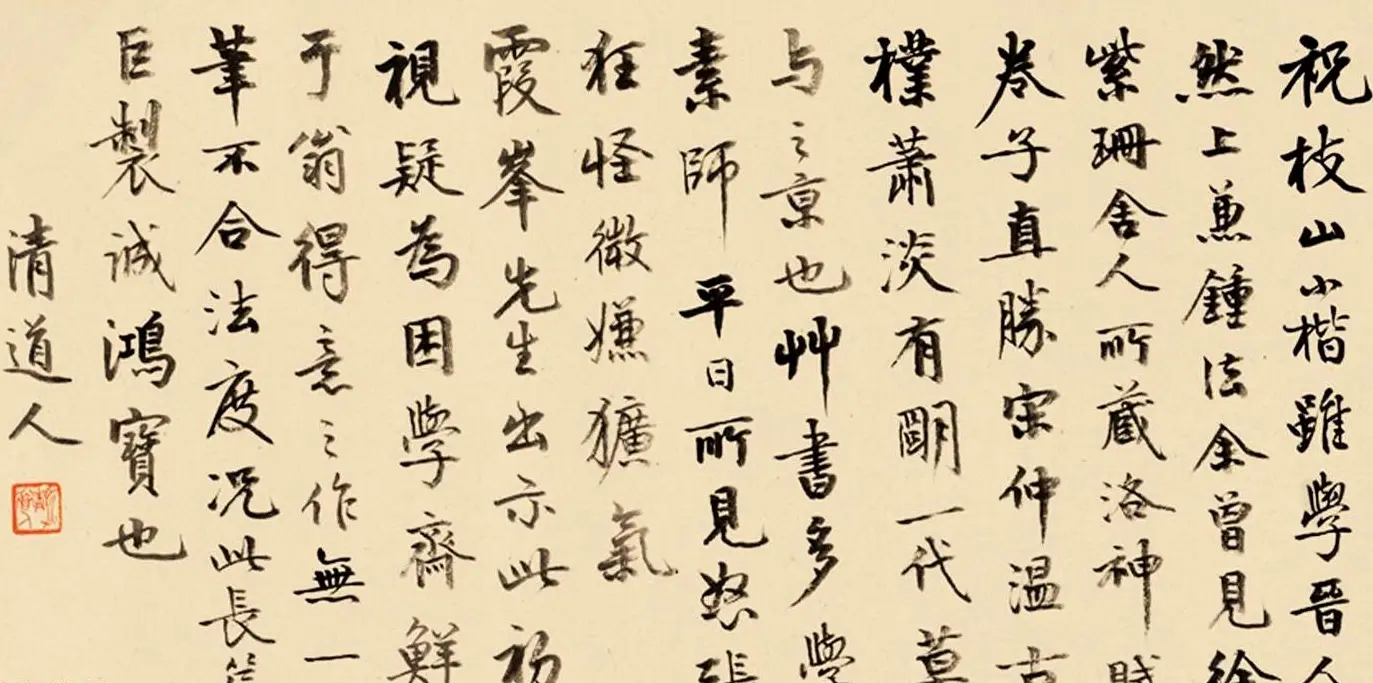 祝枝山小楷雖學晉人
然上兼鍾法余曾見徐
紫珊舍人所藏洛神賦
卷子直勝宋仲温古
樸蕭淡有明一代莫
与之京也艸書多學
素師平日所見怒張
狂怪微嫌獷氣
霞峯先生出示此初
視疑為困學齋鮮
于翁得意之作無一
筆不合法度況此長篇
巨製誠鴻寶也
清道人